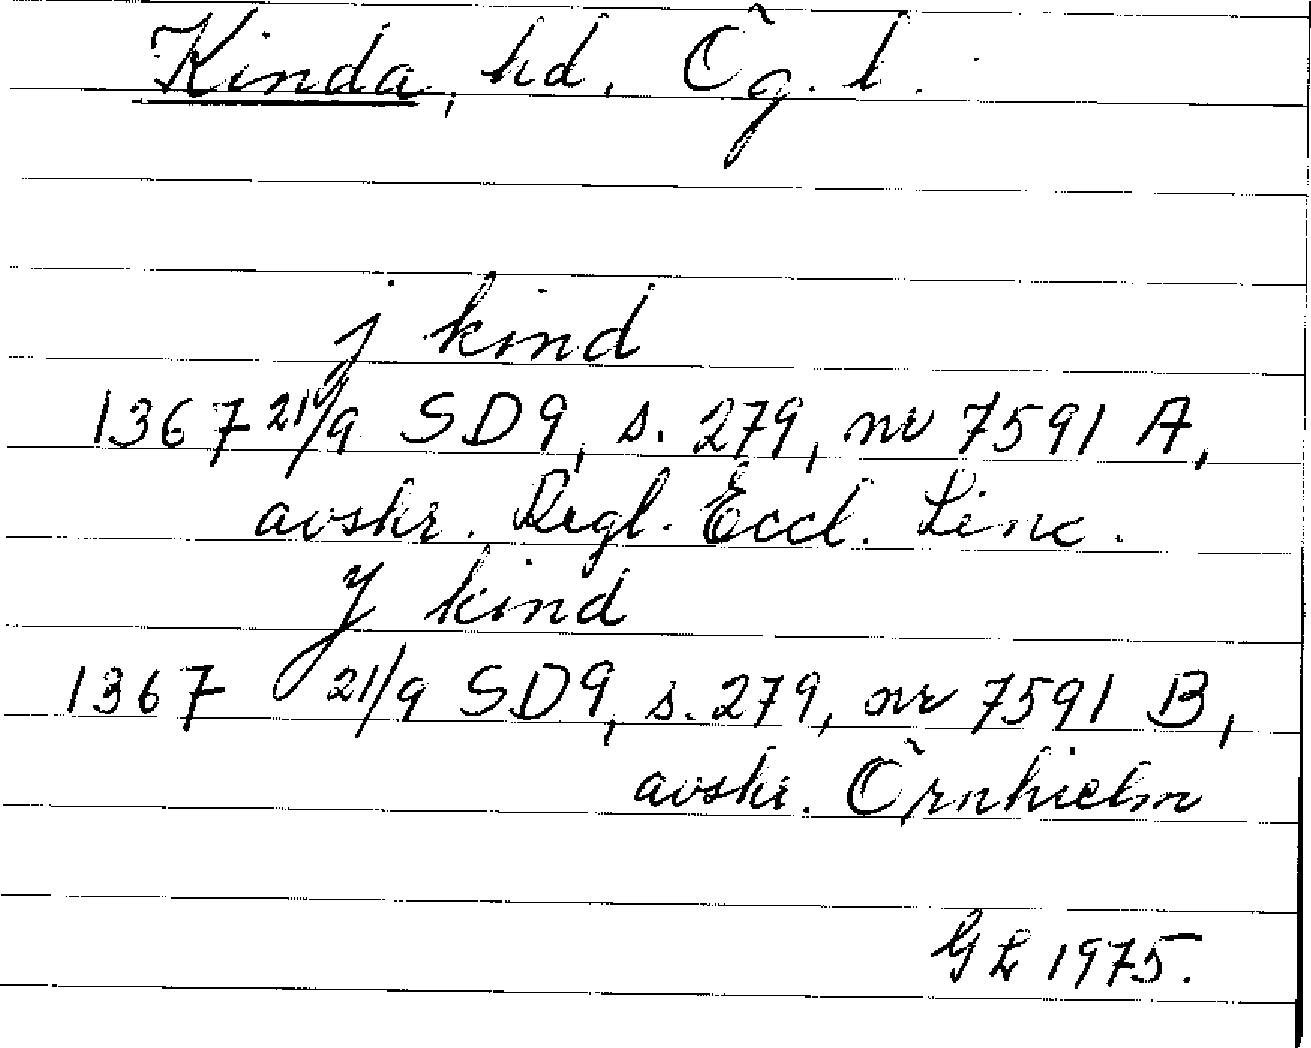 Kinda, hd, Ög. l.
j kind
1367 21/9 SD9, s. 279, nr 7591 A,
avskr. Regl. Eccl. Linc.
J kind
1367 21/9 SD9, s. 279, nr 7591 B,
avskr. Örnhielm
GL 1975.